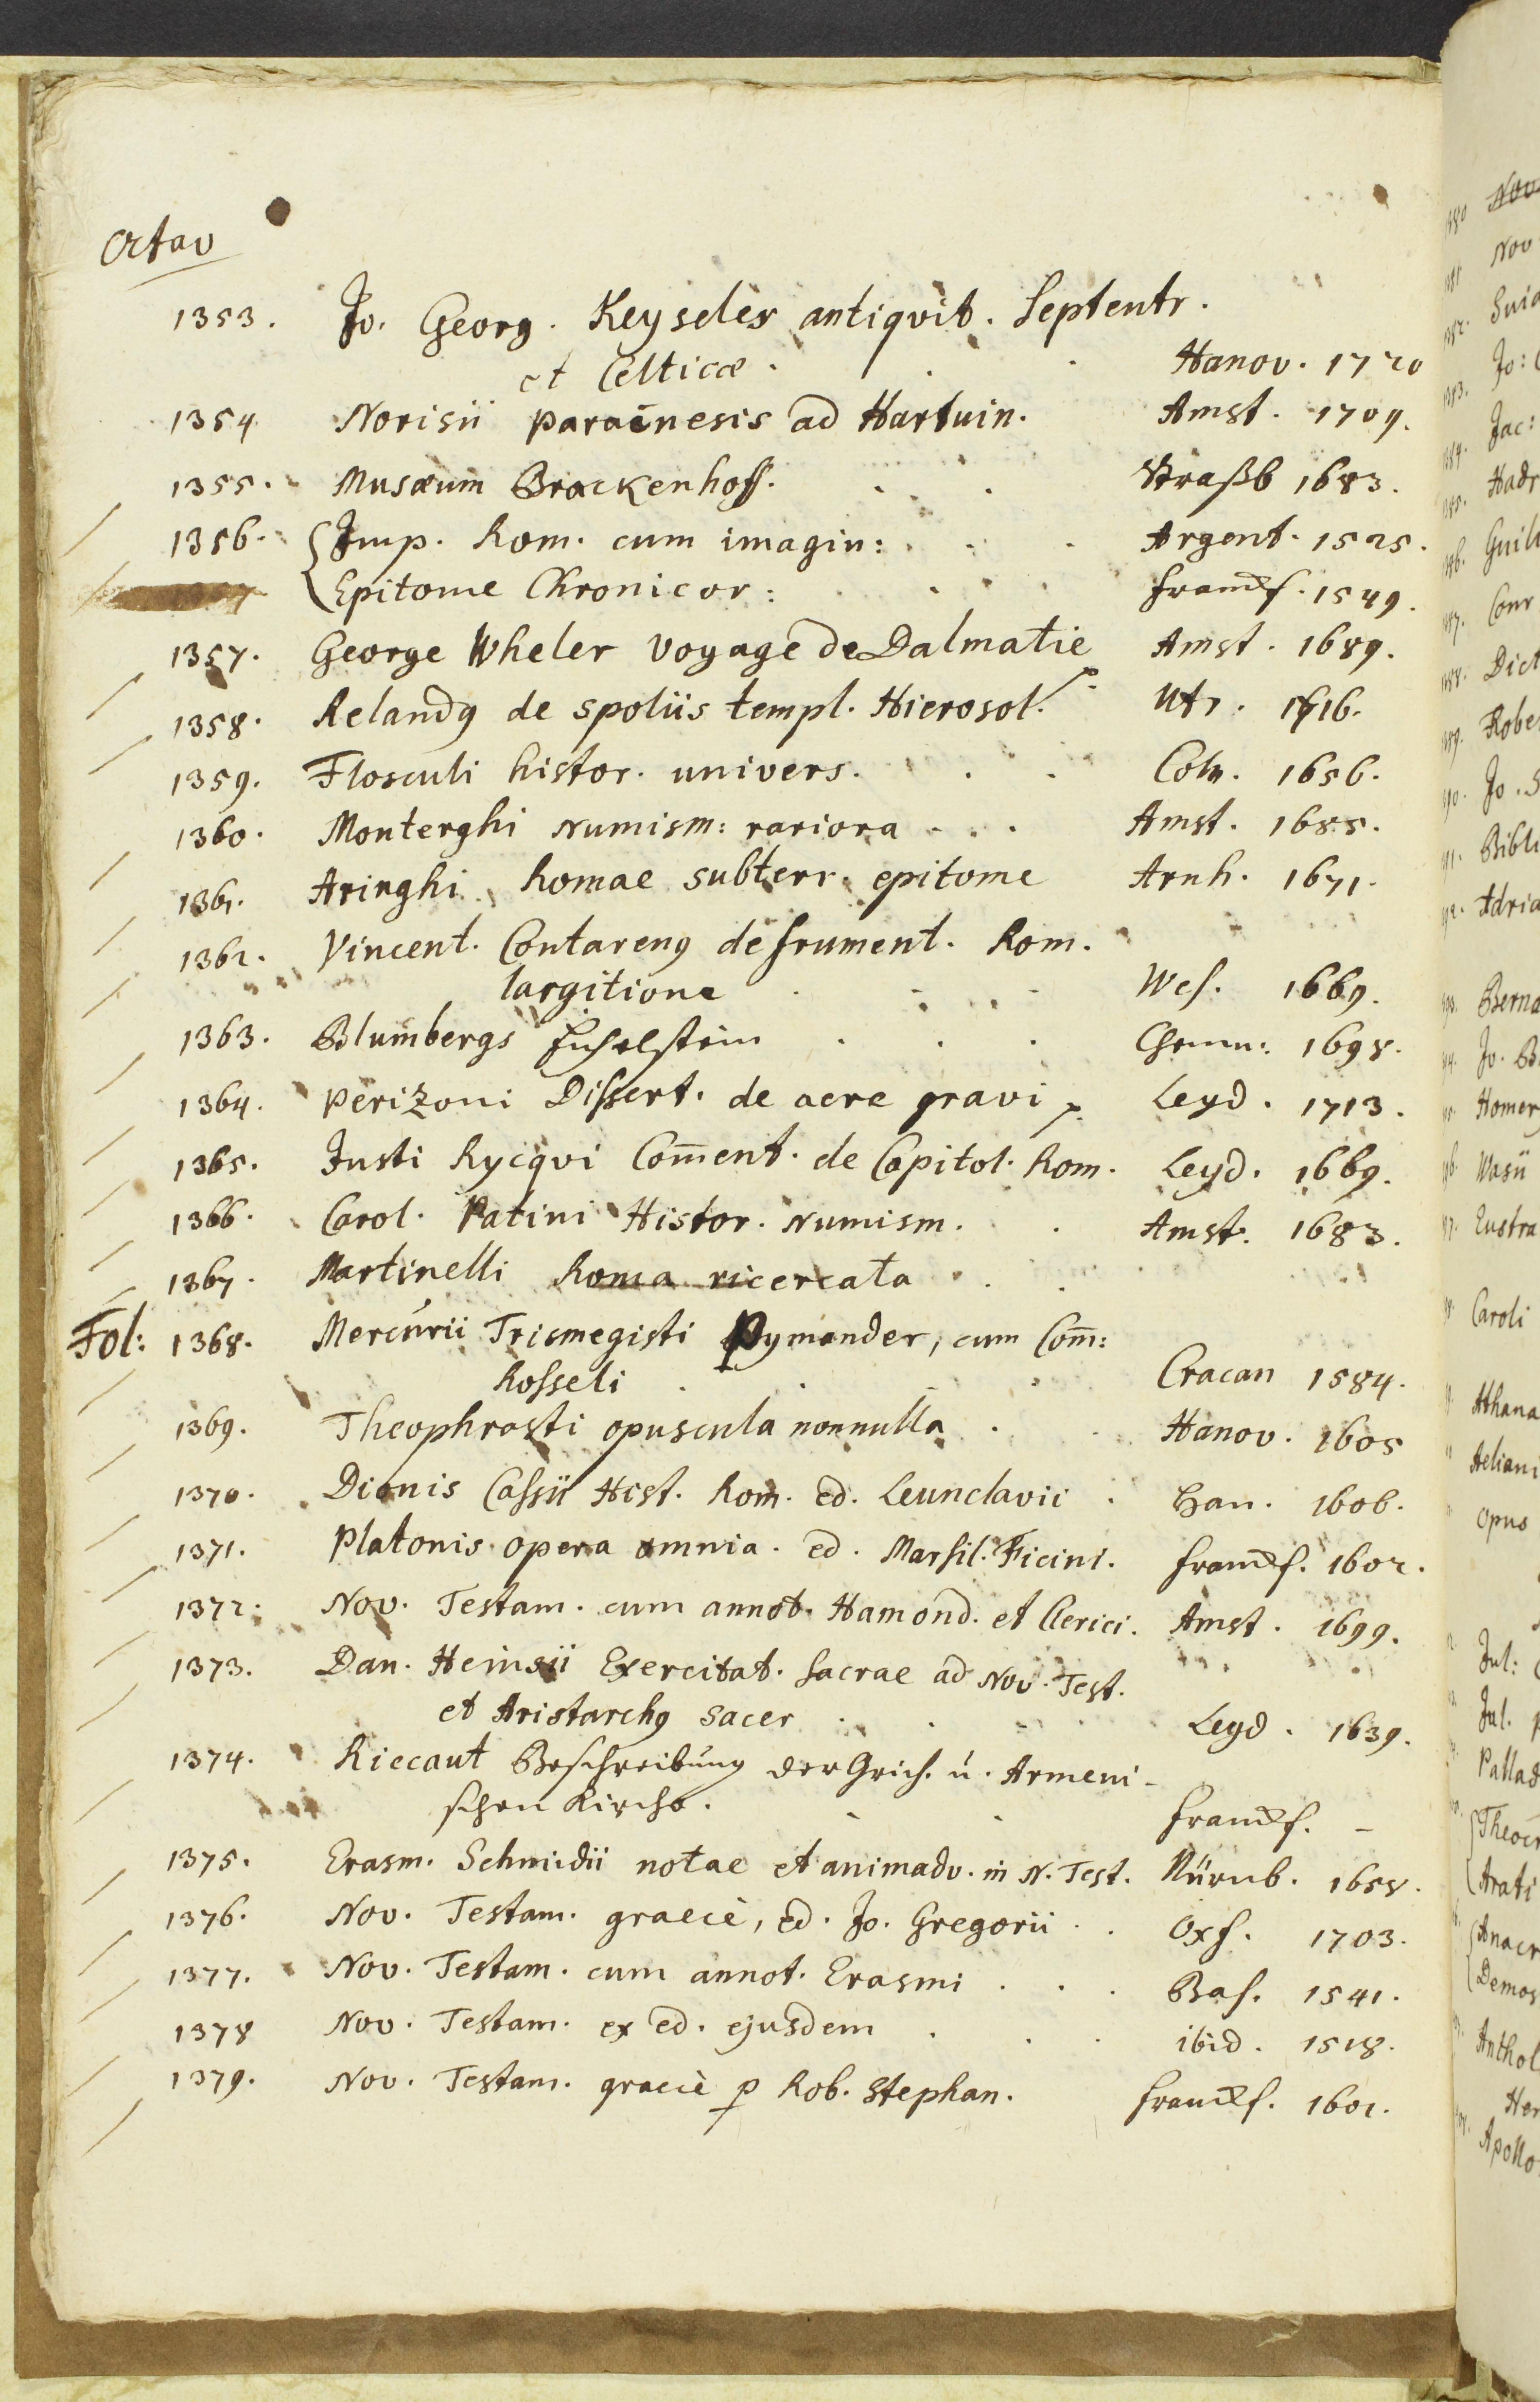 Octav
1353. Jo. Georg. Keyseler antiqvit. Septentr.
et Celticæ . Hanov. 1720
1354 Norisii paraenesis ad Harduin. Amst. 1709.
1355. Musæum Brackenhoff. Straßb 1683.
1356. Imp. Rom. cum imagin: Argent. 1525.
Epitome Chronicor: Franckf. 1549.
1357. George Wheler Voyage de Dalmatie Amst. 1689.
1358. Relandy de spoliis templ. Hierosol. Utr. 1716.
1359. Flosculi histor. univers. Coln. 1656.
1360. Monterghi Numism: rariora Amst. 1685.
1361. Aringhi Romae subterr. epitome Arnh. 1671.
1362. Vincent. Contareny de frument. Rom.
largitione Wes. 1669.
1363. Blumbergs Chemn: 1698.
1364. Perizoni Dissert. de aere gravi Leyd. 1713.
1365. Justi Rycqvi Com̄ent. de Capitol. Rom. Leyd. 1669.
1366. Carol. Patini Histor. Numism. Amst. 1683.
1367. Martinelli Roma ricercata
Fol: 1368. Mercurii Trismegisti Pymander, cum Com̄:
Rosseli Cracau 1584.
1369. Theophrasti opuscula nonnulla Hanov. 1605
1370. Dionis Cassii Hist. Rom. ed. Leunclavii Han. 1606.
1371. Platonis opera omnia. ed. Marsil. Ficini. Franckf. 1602.
1372. Nov. Testam. cum annot. Hamond. et Clerici. Amst. 1699.
1373. Dan. Heinsii Exercitat. Sacrae ad Nov. Test.
et Aristarchy sacer Leyd. 1639.
1374. Riccaut Beschreibung der Grich. u. Armeni-
schen Kirche. Franckf. -
1375. Erasm. Schmidii notae et animadv. in N. Test. Nürnb. 1658.
1376. Nov. Testam. graecè, ed. Jo. Gregorii Oxf. 1703.
1377. Nov. Testam. cum annot. Erasmi Bas. 1541.
1378 Nov. Testam. ex ed. ejusdem ibid. 1518.
1379. Nov. Testam. graecè p Rob. Stephan. Franckf. 1601.
Nov
Nov
Jo:
Jac:
Hadr
Conr
Dict
Jo. S
Adria
Berna
Jo. B
Homery
Vasii
Eustra
Caroli
Athana
Aeliani
Opus
Jul:
Jul.
Pallad
Theocr
Arati
Anacr
Demos
Anthol
Her
Apollo